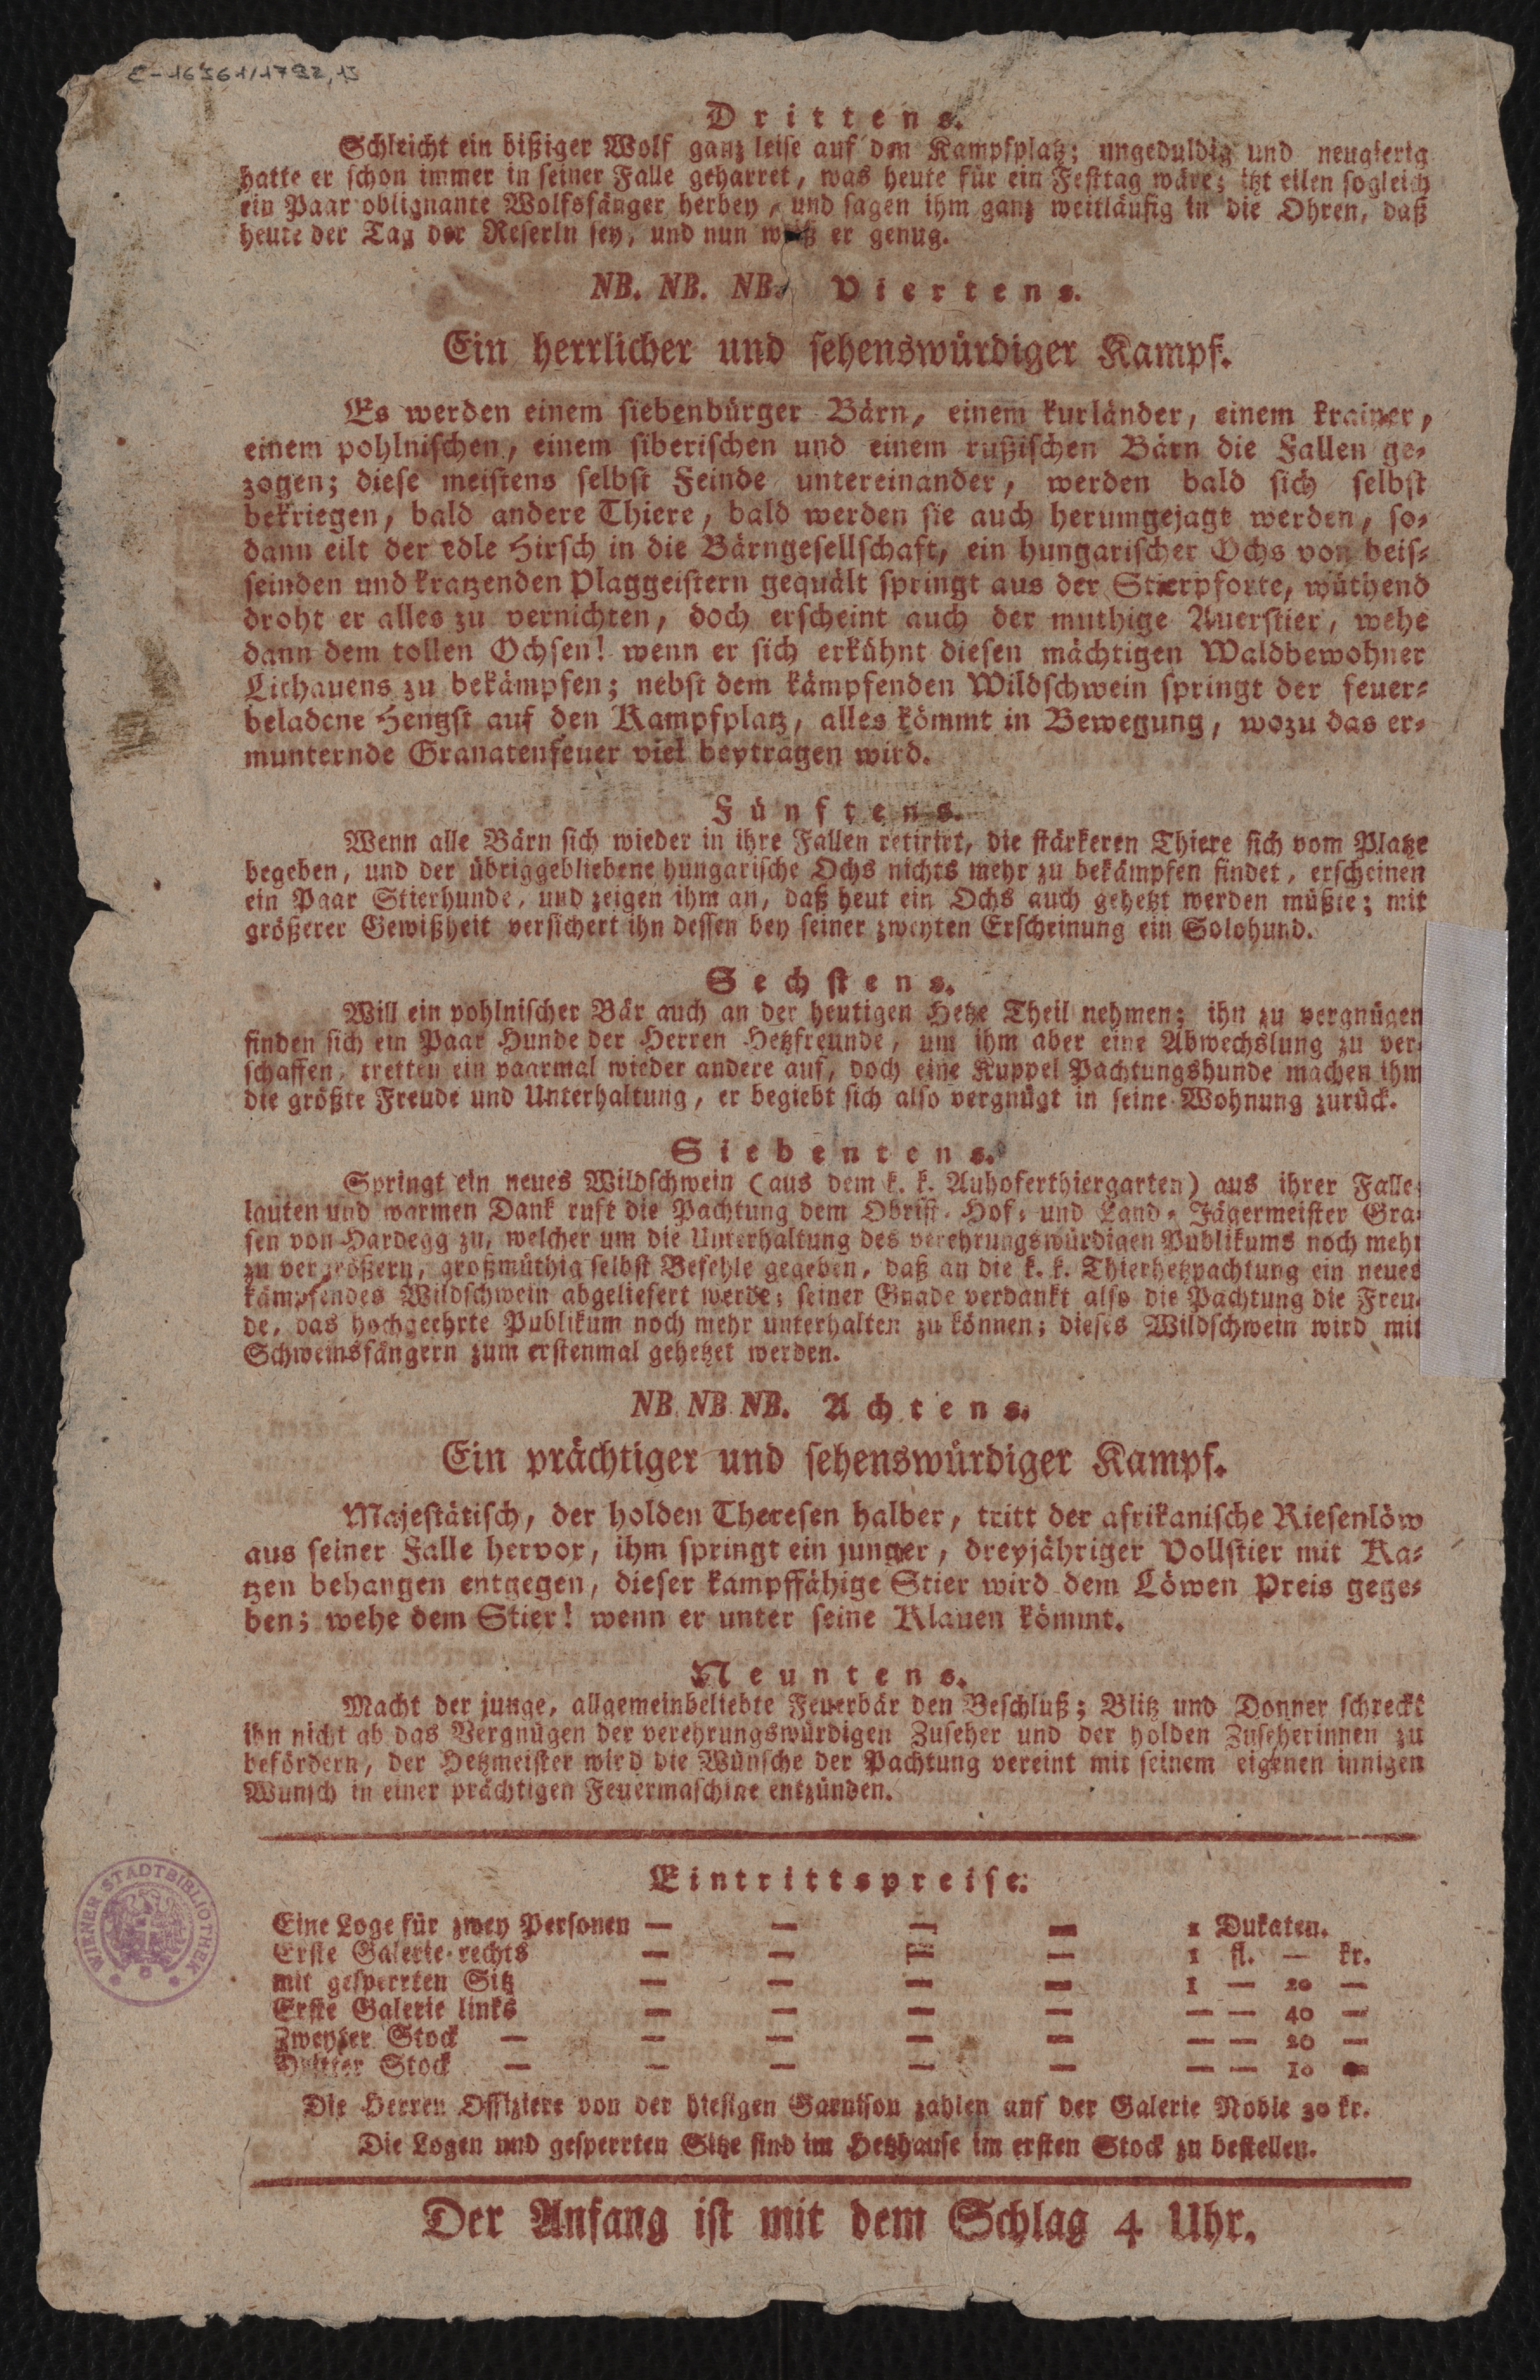 E-16561/1792,13
Drittens.
Schleicht ein bißiger Wolf ganz leise auf den Kampfplatz; ungeduldig und neugierig
hatte er schon immer in seiner Falle geharret, was heute für ein Festtag wäre; itzt eilen sogleich
ein Paar oblignante Wolfsfänger herbey, und sagen ihm ganz weitläufig in die Ohren, daß
heute der Tag der Reserln sey, und nun weiß er genug.
NB. NB. NB. Viertens.
Ein herrlicher und sehenswürdiger Kampf.
Es werden einem siebenbürger Bärn, einem kurländer, einem krainer,
einem pohlnischen, einem siberischen und einem rußischen Bärn die Fallen ge-
zogen; diese meistens selbst Feinde untereinander, werden bald sich selbst
bekriegen, bald andere Thiere, bald werden sie auch herumgejagt werden, so-
dann eilt der edle Hirsch in die Bärngesellschaft, ein hungarischer Ochs von beis-
seinden und kratzenden Plaggeistern gequält springt aus der Stierpforte, wüthend
droht er alles zu vernichten, doch erscheint auch der muthige Auerstier, wehe
dann dem tollen Ochsen! wenn er sich erkühnt diesen mächtigen Waldbewohner
Lithauens zu bekämpfen; nebst dem kämpfenden Wildschwein springt der feuer-
beladene Hengst auf den Kampfplatz, alles kömmt in Bewegung, wozu das er-
munternde Granatenfeuer viel beytragen wird.
Fünftens.
Wenn alle Bärn sich wieder in ihre Fallen retirirt, die stärkeren Thiere sich vom Platze
begeben, und der übriggebliebene hungarische Ochs nichts mehr zu bekämpfen findet, erscheinen
ein Paar Stierhunde, und zeigen ihm an, daß heut ein Ochs auch gehetzt werden müßte; mit
größerer Gewißheit versichert ihn dessen bey seiner zweyten Erscheinung ein Solohund.
Sechstens.
Will ein pohlnischer Bär auch an der heutigen Hetze Theil nehmen; ihn zu vergnügen
finden sich ein Paar Hunde der Herren Hetzfreunde, um ihm aber eine Abwechslung zu ver-
schaffen, tretten ein paarmal wieder andere auf, doch eine Kuppel Pachtungshunde machen ihm
die größte Freude und Unterhaltung, er begiebt sich also vergnügt in seine Wohnung zurück.
Siebentens.
Springt ein neues Wildschwein (aus dem k. k. Auhoferthiergarten) aus ihrer Falle;
lauten und warmen Dank ruft die Pachtung dem Obrist- Hof- und Land- Jägermeister Gra-
fen von Hardegg zu, welcher um die Unterhaltung des verehrungswürdigen Publikums noch mehr
zu vergrößern, großmüthig selbst Befehle gegeben, daß an die k. k. Thierhetzpachtung ein neues
kämpfendes Wildschwein abgeliefert werde; seiner Gnade verdankt also die Pachtung die Freu-
de, das hochgeehrte Publikum noch mehr unterhalten zu können; dieses Wildschwein wird mit
Schweinsfängern zum erstenmal gehetzet werden.
NB. NB NB. Achtens.
Ein prächtiger und sehenswürdiger Kampf.
Majestätisch, der holden Theresen halber, tritt der afrikanische Riesenlöw
aus seiner Falle hervor, ihm springt ein junger, dreyjähriger Vollstier mit Ka-
tzen behangen entgegen, dieser kampffähige Stier wird dem Löwen Preis gege-
ben; wehe dem Stier! wenn er unter seine Klauen kömmt.
Neuntens.
Macht der junge, allgemeinbeliebte Feuerbär den Beschluß; Blitz und Donner schreckt
ihn nicht ab das Vergnügen der verehrungswürdigen Zuseher und der holden Zuseherinnen zu
befördern, der Hetzmeister wird die Wünsche der Pachtung vereint mit seinem eigenen innigen
Wunsch in einer prächtigen Feuermaschine entzünden.
Eintrittspreise:
Eine Loge für zwey Personen — — — — 1 Dukaten.
Erste Galerie rechts — — — — 1 fl. — kr.
mit gesperrten Sitz — — — — 1 — 20 —
Erste Galerie links — — — — — — 40 —
Zweyter Stock — — — — — — — 20 —
Dritter Stock — — — — — — — 10 —
Die Herren Offiziere von der hiesigen Garnison zahlen auf der Galerie Noble 30 kr.
Die Logen und gesperrten Sitze sind im Hetzhause im ersten Stock zu bestellen.
Der Anfang ist mit dem Schlag 4 Uhr.
WIENER STADTBIBLIOTHEK